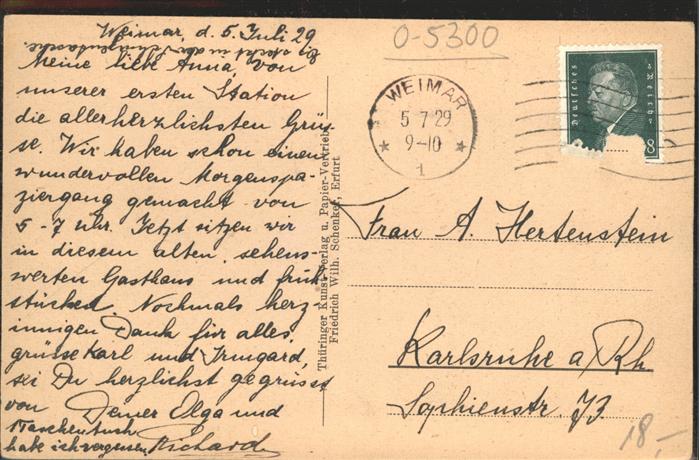 Weimar, d. 5. Juli 29
Meine liebe Anna, von
unserer ersten Station
die allerherzlichsten Grüs-
se. Wir haben schon einen
wundervollen Morgenspa-
ziergang gemacht von
5-7 Uhr. Jetzt sitzen wir
in diesem alten, sehens-
werten Gasthaus und früh-
stücken. Nochmals herz
innigen Dank für alles,
grüsse Karl und Irmgard,
sei Du herzlichst gegrüsst
von Deiner Olga und
Taschentuch
habe ich vergessen Richard
Thüringer Kunst-Verlag u. Papier-Vertrieb
Friedrich Wilh. Schenkel, Erfurt
0-5300
WEIMAR
5 7 29
9-10
1
Deutsches Reich
8
Frau A. Hertenstein
Karlsruhe a/Rh
Sophienstr. 73.
18,-